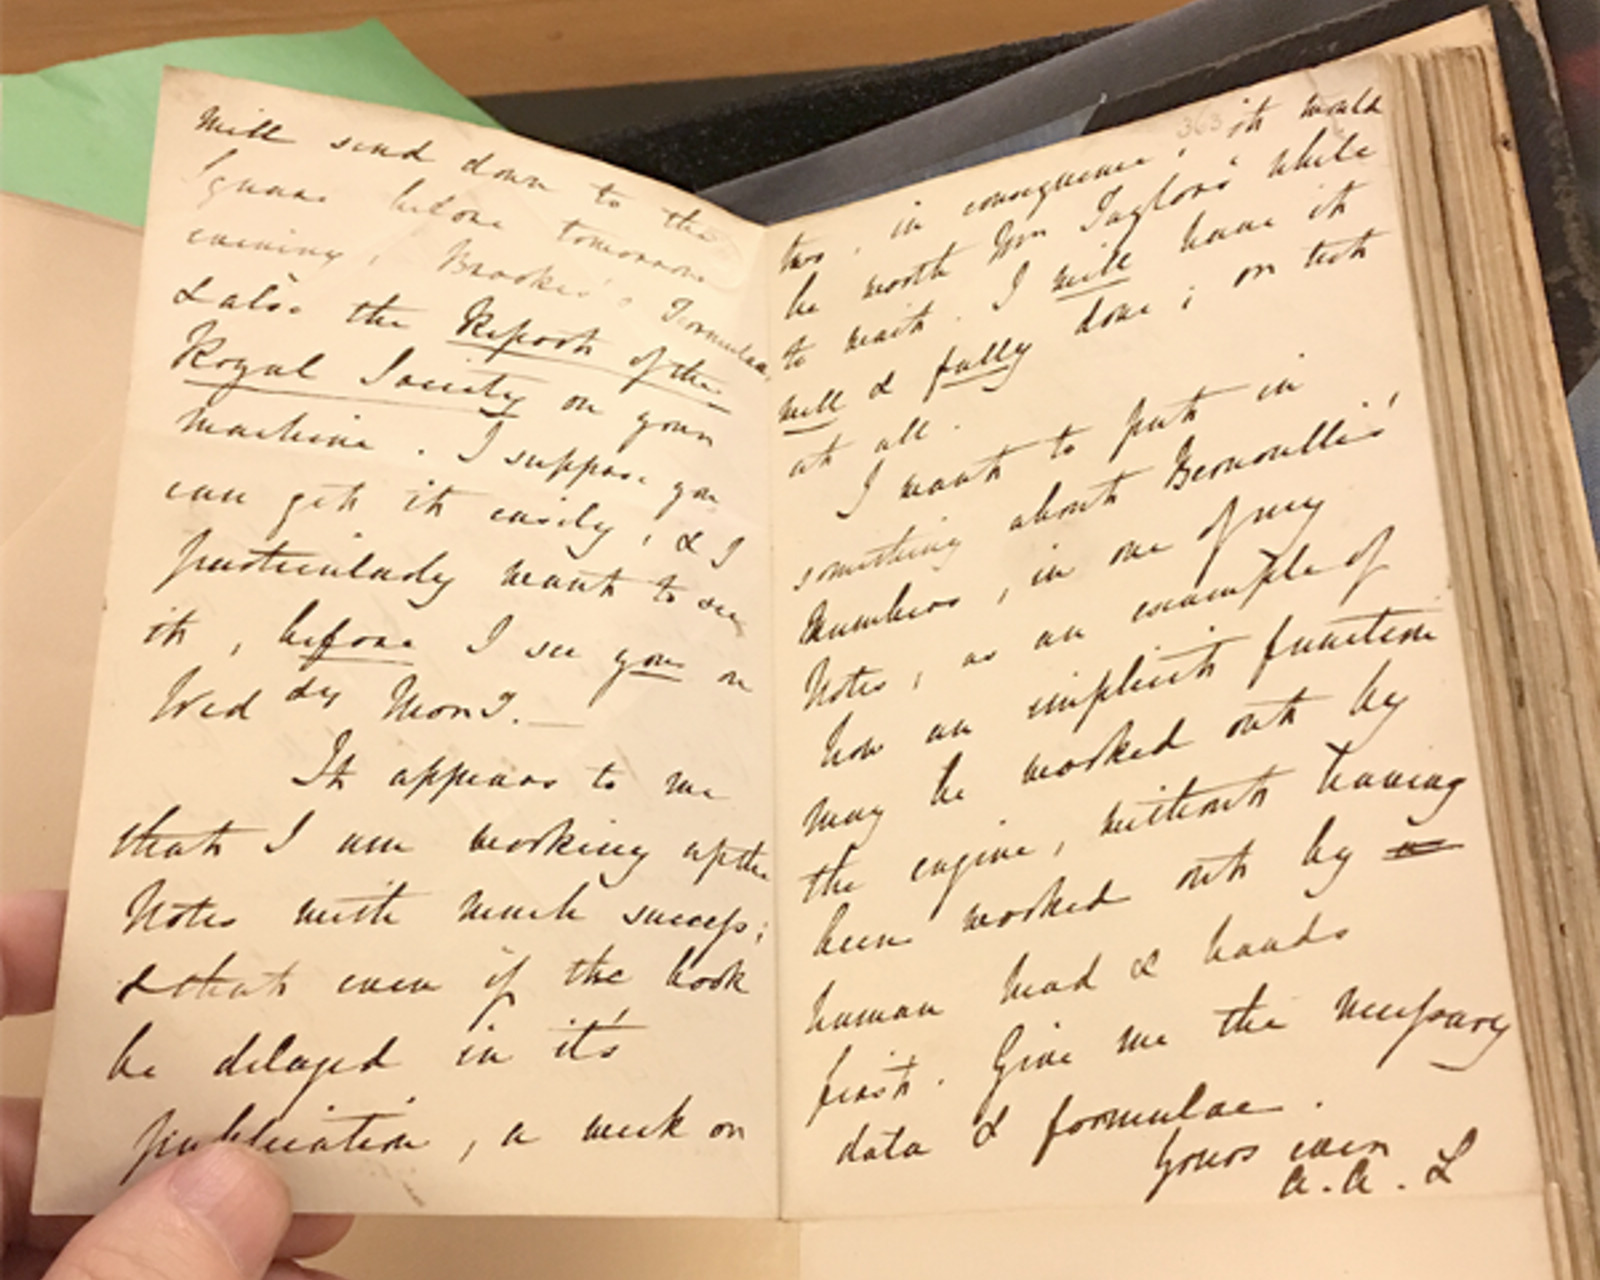 will send down to the
Square before tomorrow
evening, Brooke's Formulae,
& also the Report of the
Royal Society on your
machine. I suppose you
can get it easily, & I
particularly want to see
it, before I see you on
Wed dy Mong.
It appears to me
that I am working up the
Notes with much success;
& that even if the book
be delayed in it's
publication, a week or
363
two, in consequence, it would
be worth Mr Taylor's while
to wait. I will have it
well & fully done; or not
at all.
I want to put in
something about Bernoulli's
Numbers, in one of my
Notes, as an example of
how an implicit function
may be worked out by
the engine, without having
been worked out by
human head & hands
first. Give me the necessary
data & formulae.
Yours ever
A.A.L